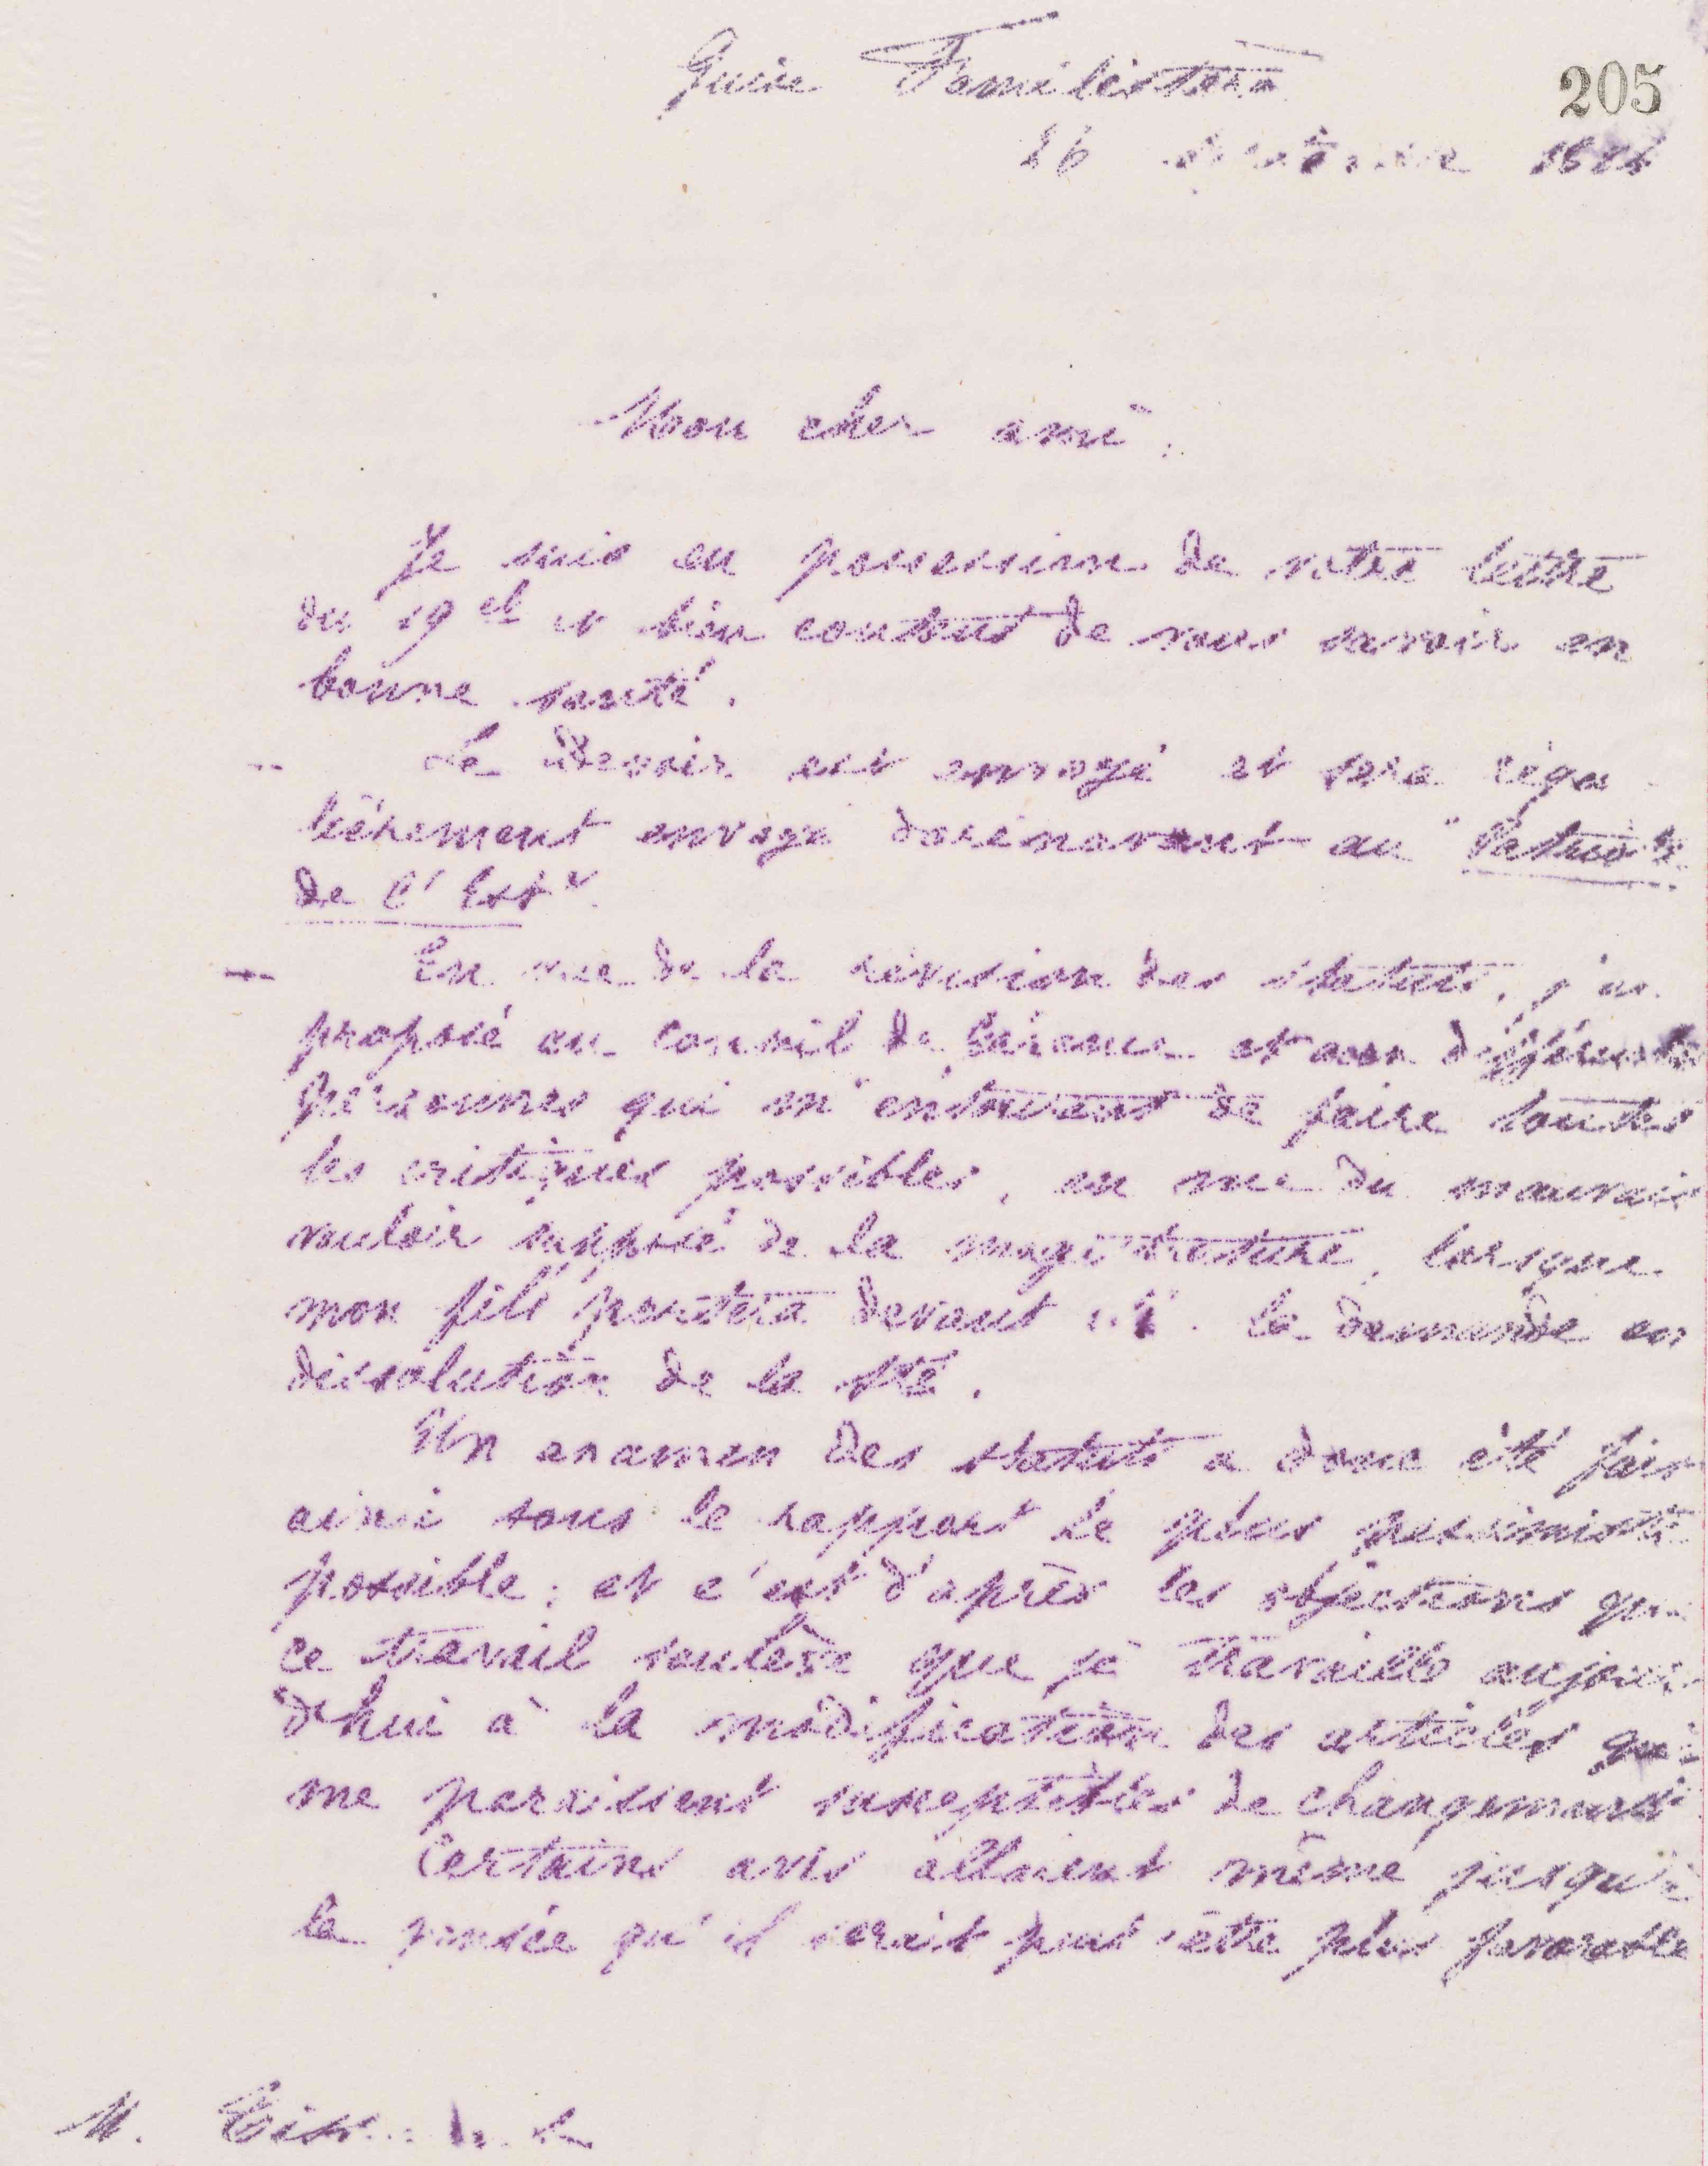 Guise Familistère
205
26
Mon cher ami,
Je suis en possession de votre lettre
du 19 ct et bien content de vous savoir en
bonne santé.
Le Devoir est envoyé et sera régu-
lièrement envoyé dorénavant au "Patriote
de l'Est".
En vue de la révision des statuts, j'ai
proposé au Conseil de Gérance et aux différentes
personnes qui m'entourent de faire toutes
les critiques possibles, en vue du mauvais
vouloir supposé de la magistrature, lorsque
mon fils portera devant la demande en
dissolution de la Sté.
Un examen des statuts a donc été fait
ainsi sous le rapport le plus pessimiste
possible; et c'est d'après les objections que
ce travail soulève que je travaille aujour-
d'hui à la modification des articles qui
me paraissent susceptibles de changements
Certains avis allaient même jusqu'à
la pensée qu'il serait peut-être plus favorable
M.